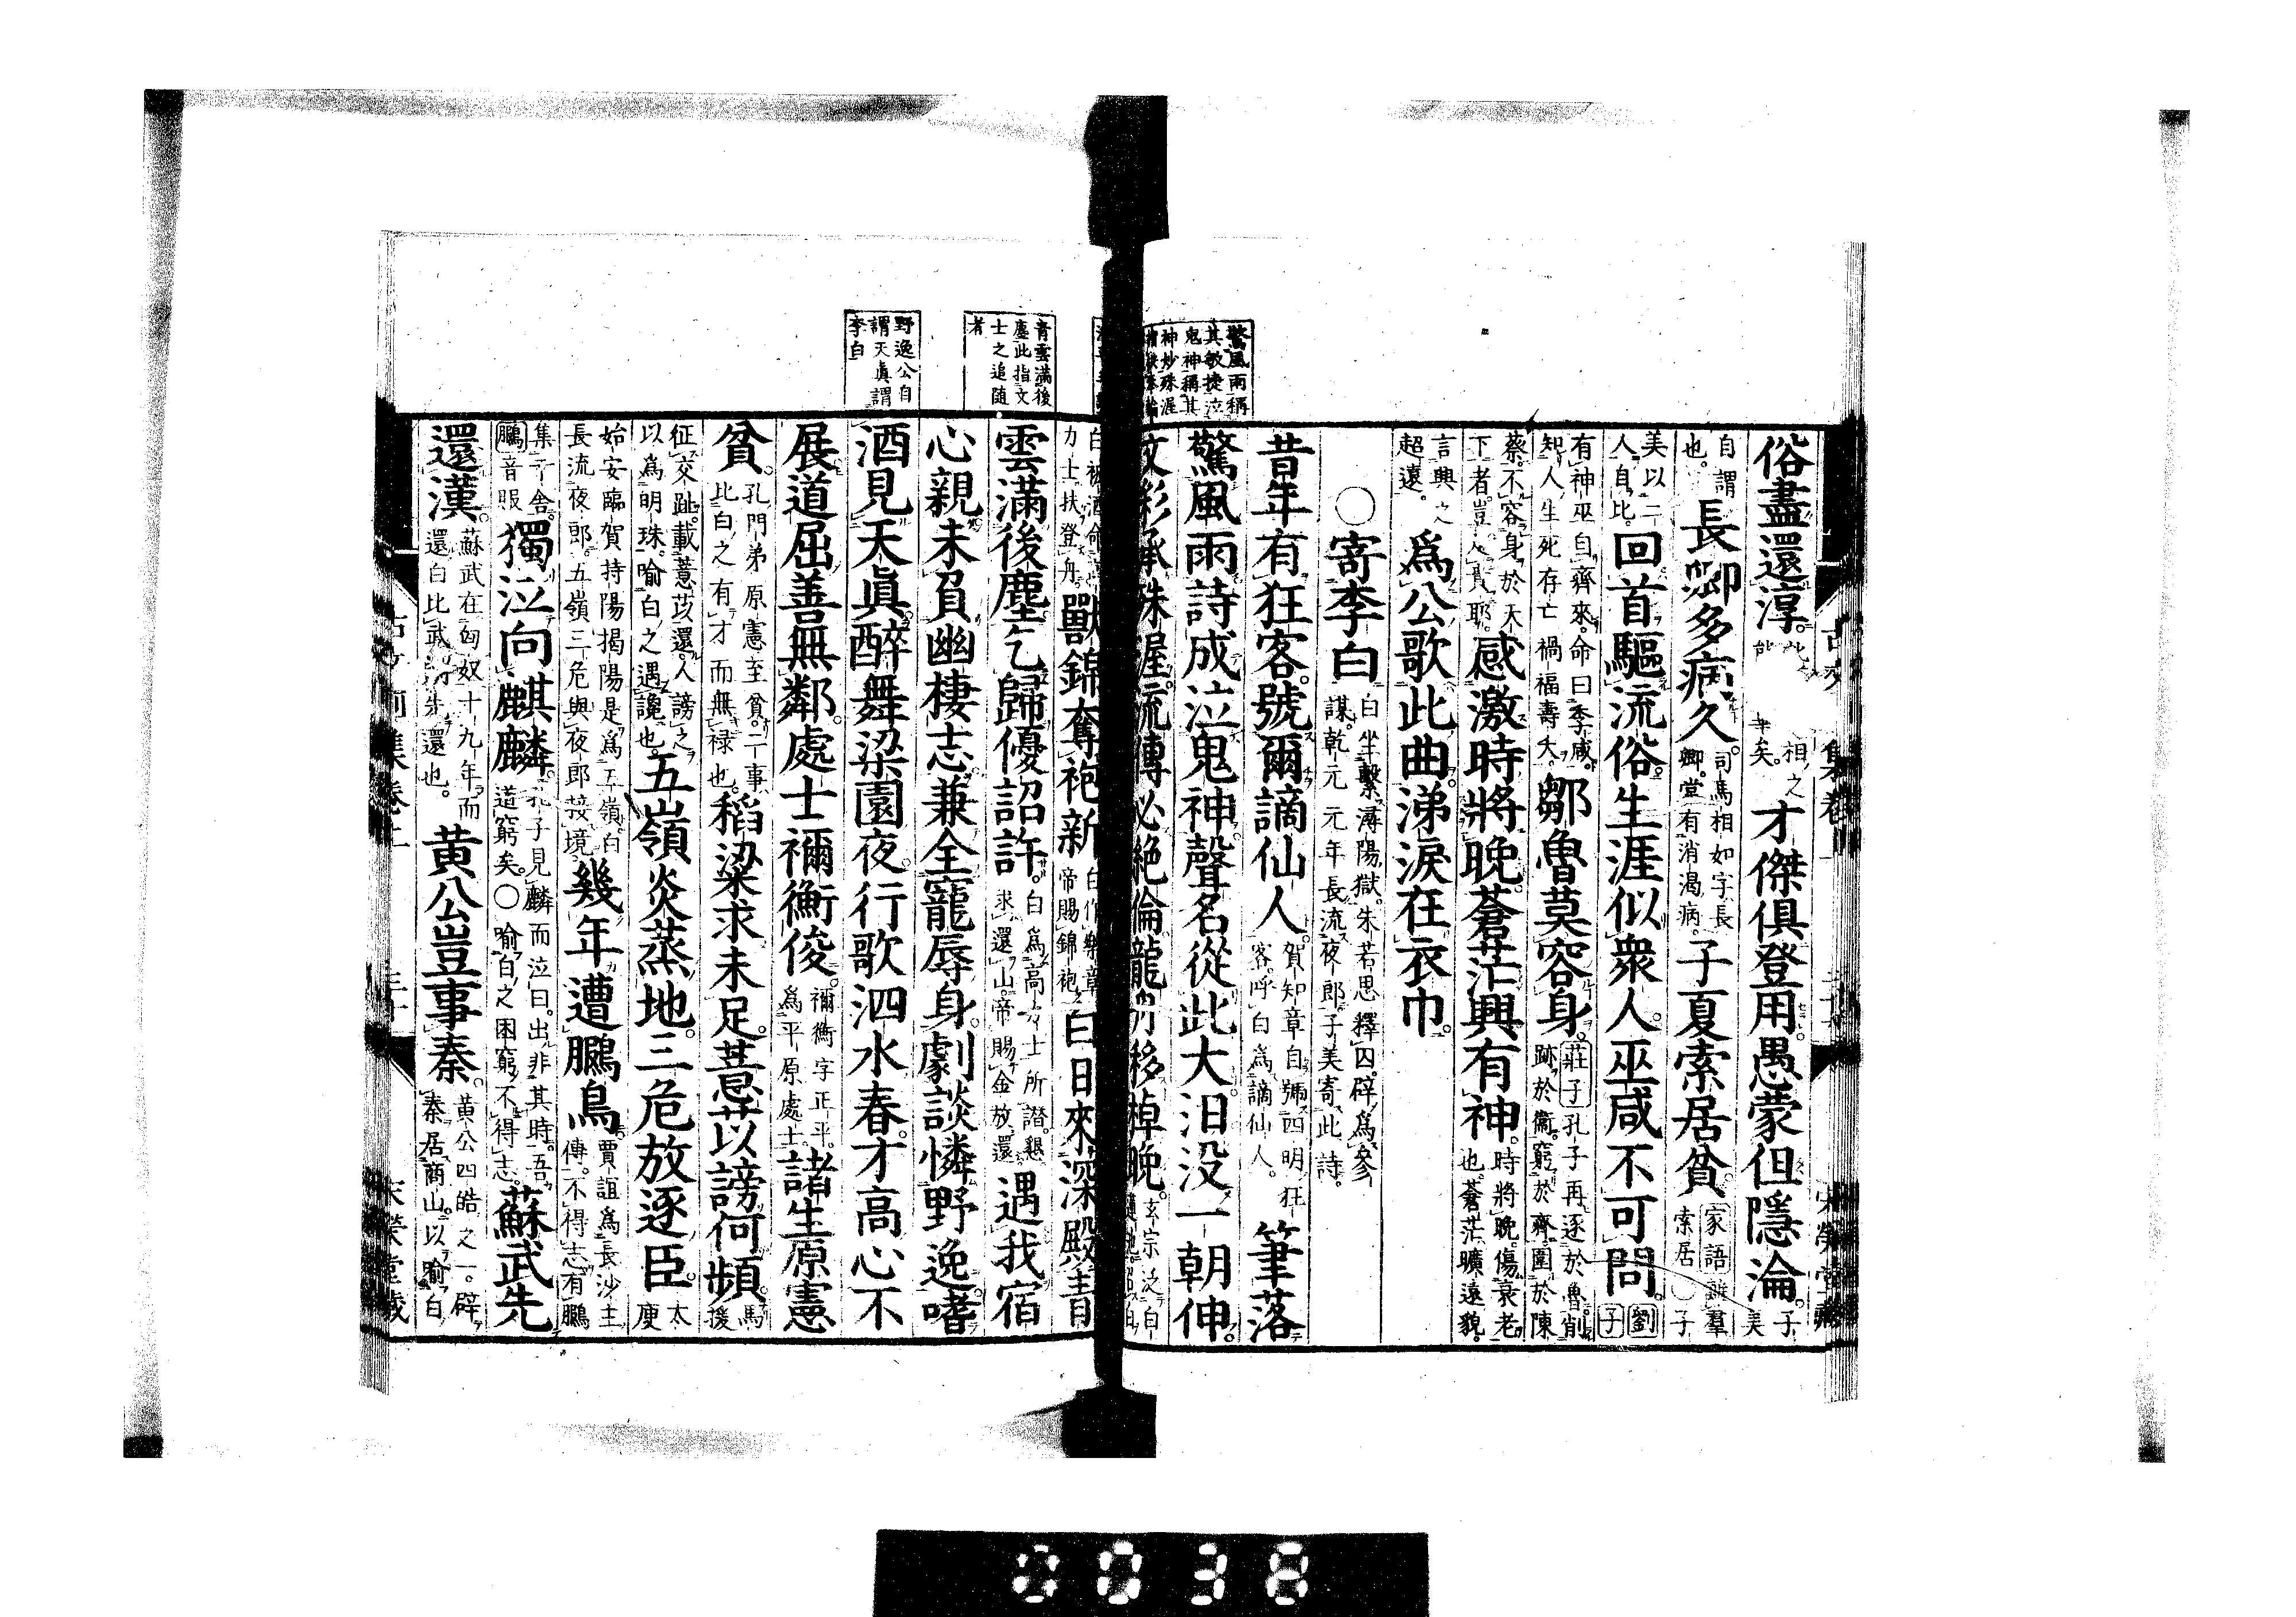 驚風雨稱
其敏捷泣
鬼神稱其
神妙殊渥
俗盡還淳。
才傑俱登用。愚蒙但隱淪。子美
自謂也。長卿多病久。司馬相如字長卿。嘗有消渴病。子夏索居貧。家語離羣索居○子子
美以二人自比。回首驅流俗。生涯似衆人。巫咸不可問。劉子
有神巫自齊來。命曰季咸。知人生死存亡禍福壽夭。鄒魯莫容身。莊子孔子再逐於魯。削跡於衞。窮於齊。圍於陳
蔡。不容身於天下者。豈人貴耶。感激時將晚。蒼茫興有神。時將晚。傷衰老也。蒼茫曠遠貌。
言興之超遠。爲公歌此曲。涕淚在衣巾。
○寄李白 白坐繫潯陽獄。朱若思釋囚。辟爲參謀。乾元元年長流夜郎。子美寄此詩。
昔年有狂客。號爾謫仙人。賀知章自號四明狂客。呼白爲謫仙人。筆落
驚風雨。詩成泣鬼神。聲名從此大。汨没一朝伸。
文彩承殊渥。流傳必絶倫。龍舟移棹晚。玄宗泛白
青雲滿後
塵此指文
士之追隨
者
野逸公自
謂天眞謂
李白
力士扶登舟。獸錦奪袍新。帝賜錦袍。白日來深殿。青
雲滿後塵。乞歸優詔許。白爲高力士所譖。懇求還山。帝賜金放還。遇我宿
心親。未負幽棲志。兼全寵辱身。劇談憐野逸。嗜
酒見天眞。醉舞梁園夜。行歌泗水春。才高心不
展。道屈善無鄰。處士禰衡俊。禰衡字正平。爲平原處士。諸生原憲
貧。孔門弟原憲至貧。二事比白之有才而無祿也。稻粱求未足。薏苡謗何頻。馬援
征交趾。載薏苡還。人謗之以爲明珠。喻白之遇讒也。五嶺炎蒸地。三危放逐臣。太庾
始安臨賀持陽揭陽是爲五嶺。白長流夜郎。五嶺三危與夜郎接境。幾年遭鵩鳥。賈誼爲長沙王傅。不得志。有鵩
集于舍。鵩音服 獨泣向麒麟。孔子見麟而泣曰。出非其時。吾道窮矣。○喻白之困窮。不得志。蘇武先
還漢。蘇武在匈奴十九年。而還。白比武先還也。黄公豈事秦。黄公四皓之一。辟秦居商山。以喻白